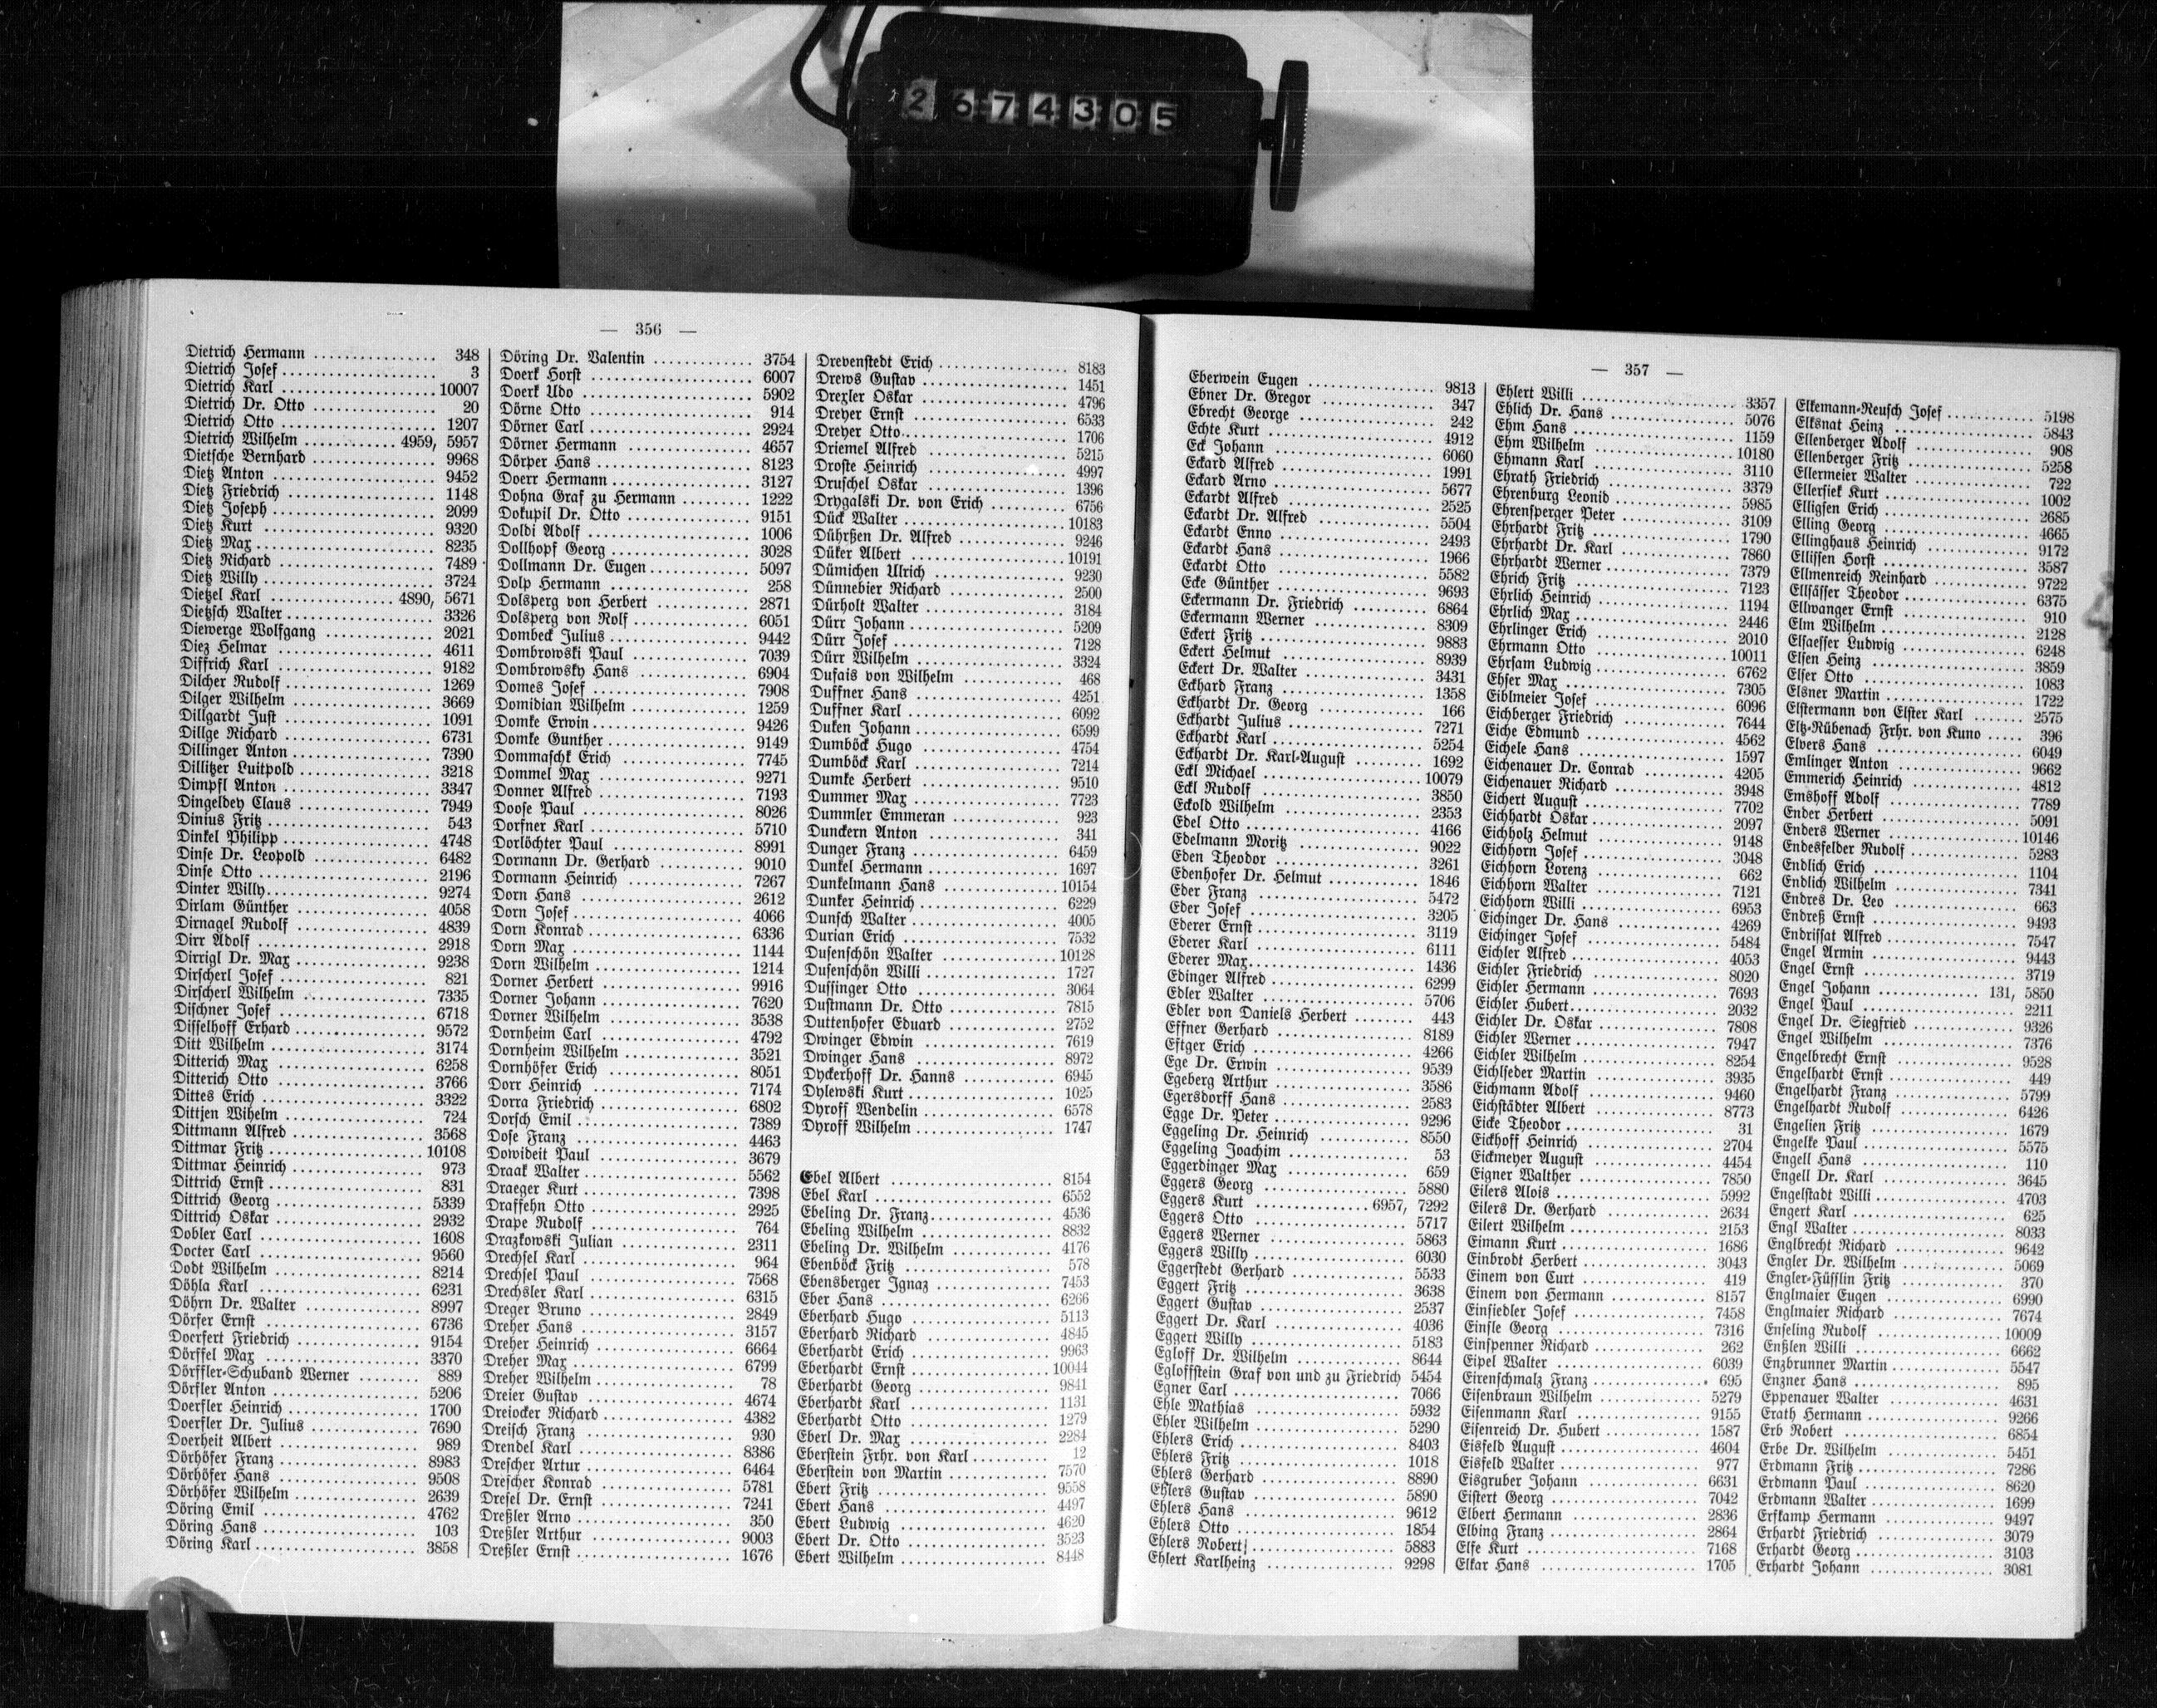 2674305
— 356 —
Dietrich Hermann ................ 348
Dietrich Josef ................ 3
Dietrich Karl ................ 10007
Dietrich Dr. Otto ................ 20
Dietrich Otto ................ 1207
Dietrich Wilhelm ........... 4959, 5957
Dietsche Bernhard ................ 9968
Dietz Anton ................ 9452
Dietz Friedrich ................ 1148
Dietz Joseph ................ 2099
Dietz Kurt ................ 9320
Dietz Max ................ 8235
Dietz Richard ................ 7489
Dietz Willy ................ 3724
Dietzel Karl ................ 4890, 5671
Dietzsch Walter ................ 3326
Diewerge Wolfgang ................ 2021
Diez Helmar ................ 4611
Diffrich Karl ................ 9182
Dilcher Rudolf ................ 1269
Dilger Wilhelm ................ 3669
Dillgardt Just ................ 1091
Dillge Richard ................ 6731
Dillinger Anton ................ 7390
Dillitzer Luitpold ................ 3218
Dimpfl Anton ................ 3347
Dingeldey Claus ................ 7949
Dinius Fritz ................ 543
Dinkel Philipp ................ 4748
Dinse Dr. Leopold ................ 6482
Dinse Otto ................ 2196
Dinter Willy ................ 9274
Dirlam Günther ................ 4058
Dirnagel Rudolf ................ 4839
Dirr Adolf ................ 2918
Dirrigl Dr. Max ................ 9238
Dirscherl Josef ................ 821
Dirscherl Wilhelm ................ 7335
Dischner Josef ................ 6718
Disselhoff Erhard ................ 9572
Ditt Wilhelm ................ 3174
Ditterich Max ................ 6258
Ditterich Otto ................ 3766
Dittes Erich ................ 3322
Dittjen Wihelm ................ 724
Dittmann Alfred ................ 3568
Dittmar Fritz ................ 10108
Dittmar Heinrich ................ 973
Dittrich Ernst ................ 831
Dittrich Georg ................ 5339
Dittrich Oskar ................ 2932
Dobler Carl ................ 1608
Docter Carl ................ 9560
Dodt Wilhelm ................ 8214
Döhla Karl ................ 6231
Döhrn Dr. Walter ................ 8997
Dörfer Ernst ................ 6736
Doerfert Friedrich ................ 9154
Dörffel Max ................ 3370
Dörffler-Schuband Werner ........ 889
Dörfler Anton ................ 5206
Doerfler Heinrich ................ 1700
Doerfler Dr. Julius ................ 7690
Doerheit Albert ................ 989
Dörhöfer Franz ................ 8983
Dörhöfer Hans ................ 9508
Dörhöfer Wilhelm ................ 2639
Döring Emil ................ 4762
Döring Hans ................ 103
Döring Karl ................ 3858
Döring Dr. Valentin ................ 3754
Doerk Horst ................ 6007
Doerk Udo ................ 5902
Dörne Otto ................ 914
Dörner Carl ................ 2924
Dörner Hermann ................ 4657
Dörper Hans ................ 8123
Doerr Hermann ................ 3127
Dohna Graf zu Hermann ................ 1222
Dokupil Dr. Otto ................ 9151
Doldi Adolf ................ 1006
Dollhopf Georg ................ 3028
Dollmann Dr. Eugen ................ 5097
Dolp Hermann ................ 258
Dolsperg von Herbert ................ 2871
Dolsperg von Rolf ................ 6051
Dombeck Julius ................ 9442
Dombrowski Paul ................ 7039
Dombrowsky Hans ................ 6904
Domes Josef ................ 7908
Domidian Wilhelm ................ 1259
Domke Erwin ................ 9426
Domke Gunther ................ 9149
Dommaschk Erich ................ 7745
Dommel Max ................ 9271
Donner Alfred ................ 7193
Doose Paul ................ 8026
Dorfner Karl ................ 5710
Dorlöchter Paul ................ 8991
Dormann Dr. Gerhard ................ 9010
Dormann Heinrich ................ 7267
Dorn Hans ................ 2612
Dorn Josef ................ 4066
Dorn Konrad ................ 6336
Dorn Max ................ 1144
Dorn Wilhelm ................ 1214
Dorner Herbert ................ 9916
Dorner Johann ................ 7620
Dorner Wilhelm ................ 3538
Dornheim Carl ................ 4792
Dornheim Wilhelm ................ 3521
Dornhöfer Erich ................ 8051
Dorr Heinrich ................ 7174
Dorra Friedrich ................ 6802
Dorsch Emil ................ 7389
Dose Franz ................ 4463
Dowideit Paul ................ 3679
Draak Walter ................ 5562
Draeger Kurt ................ 7398
Draffehn Otto ................ 2925
Drape Rudolf ................ 764
Drazkowski Julian ................ 2311
Drechsel Karl ................ 964
Drechsel Paul ................ 7568
Drechsler Karl ................ 6315
Dreger Bruno ................ 2849
Dreher Hans ................ 3157
Dreher Heinrich ................ 6664
Dreher Max ................ 6799
Dreher Wilhelm ................ 78
Dreier Gustav ................ 4674
Dreiocker Richard ................ 4382
Dreisch Franz ................ 930
Drendel Karl ................ 8386
Drescher Artur ................ 6464
Drescher Konrad ................ 5781
Dresel Dr. Ernst ................ 7241
Dreßler Arno ................ 350
Dreßler Arthur ................ 9003
Dreßler Ernst ................ 1676
Drevenstedt Erich ................ 8183
Drews Gustav ................ 1451
Drexler Oskar ................ 4796
Dreyer Ernst ................ 6533
Dreyer Otto ................ 1706
Driemel Alfred ................ 5215
Droste Heinrich ................ 4997
Druschel Oskar ................ 1396
Drygalski Dr. von Erich ................ 6756
Dück Walter ................ 10183
Dührßen Dr. Alfred ................ 9246
Düker Albert ................ 10191
Dümichen Ulrich ................ 9230
Dünnebier Richard ................ 2500
Dürholt Walter ................ 3184
Dürr Johann ................ 5209
Dürr Josef ................ 7128
Dürr Wilhelm ................ 3324
Dufais von Wilhelm ................ 468
Duffner Hans ................ 4251
Duffner Karl ................ 6092
Duken Johann ................ 6599
Dumböck Hugo ................ 4754
Dumböck Karl ................ 7214
Dumke Herbert ................ 9510
Dummer Max ................ 7723
Dummler Emmeran ................ 923
Dunckern Anton ................ 341
Dunger Franz ................ 6459
Dunkel Hermann ................ 1697
Dunkelmann Hans ................ 10154
Dunker Heinrich ................ 6229
Dunsch Walter ................ 4005
Durian Erich ................ 7532
Dusenschön Walter ................ 10128
Dusenschön Willi ................ 1727
Dussinger Otto ................ 3064
Dustmann Dr. Otto ................ 7815
Duttenhofer Eduard ................ 2752
Dwinger Edwin ................ 7619
Dwinger Hans ................ 8972
Dyckerhoff Dr. Hanns ................ 6945
Dylewski Kurt ................ 1025
Dyroff Wendelin ................ 6578
Dyroff Wilhelm ................ 1747
Ebel Albert ................ 8154
Ebel Karl ................ 6552
Ebeling Dr. Franz ................ 4536
Ebeling Wilhelm ................ 8832
Ebeling Dr. Wilhelm ................ 4176
Ebenböck Fritz ................ 578
Ebensberger Ignaz ................ 7453
Eber Hans ................ 6266
Eberhard Hugo ................ 5113
Eberhard Richard ................ 4845
Eberhardt Erich ................ 9963
Eberhardt Ernst ................ 10044
Eberhardt Georg ................ 9841
Eberhardt Karl ................ 1131
Eberhardt Otto ................ 1279
Eberl Dr. Max ................ 2284
Eberstein Frhr. von Karl ................ 12
Eberstein von Martin ................ 7570
Ebert Fritz ................ 9558
Ebert Hans ................ 4497
Ebert Ludwig ................ 4620
Ebert Dr. Otto ................ 3523
Ebert Wilhelm ................ 8448
— 357 —
Eberwein Eugen ................ 9813
Ebner Dr. Gregor ................ 347
Ebrecht George ................ 242
Echte Kurt ................ 4912
Eck Johann ................ 6060
Eckard Alfred ................ 1991
Eckard Arno ................ 5677
Eckardt Alfred ................ 2525
Eckardt Dr. Alfred ................ 5504
Eckardt Enno ................ 2493
Eckardt Hans ................ 1966
Eckardt Otto ................ 5582
Ecke Günther ................ 9693
Eckermann Dr. Friedrich ................ 6864
Eckermann Werner ................ 8309
Eckert Fritz ................ 9883
Eckert Helmut ................ 8939
Eckert Dr. Walter ................ 3431
Eckhard Franz ................ 1358
Eckhardt Dr. Georg ................ 166
Eckhardt Julius ................ 7271
Eckhardt Karl ................ 5254
Eckhardt Dr. Karl-August ................ 1692
Eckl Michael ................ 10079
Eckl Rudolf ................ 3850
Eckold Wilhelm ................ 2353
Edel Otto ................ 4166
Edelmann Moritz ................ 9022
Eden Theodor ................ 3261
Edenhofer Dr. Helmut ................ 1846
Eder Franz ................ 5472
Eder Josef ................ 3205
Ederer Ernst ................ 3119
Ederer Karl ................ 6111
Ederer Max ................ 1436
Edinger Alfred ................ 6299
Edler Walter ................ 5706
Edler von Daniels Herbert ........ 443
Effner Gerhard ................ 8189
Eftger Erich ................ 4266
Ege Dr. Erwin ................ 9539
Egeberg Arthur ................ 3586
Egersdorff Hans ................ 2583
Egge Dr. Peter ................ 9296
Eggeling Dr. Heinrich ................ 8550
Eggeling Joachim ................ 53
Eggerdinger Max ................ 659
Eggers Georg ................ 5880
Eggers Kurt ................ 6957, 7292
Eggers Otto ................ 5717
Eggers Werner ................ 5863
Eggers Willy ................ 6030
Eggerstedt Gerhard ................ 5533
Eggert Fritz ................ 3638
Eggert Gustav ................ 2537
Eggert Dr. Karl ................ 4036
Eggert Willy ................ 5183
Egloff Dr. Wilhelm ................ 8644
Egloffstein Graf von und zu Friedrich 5454
Egner Carl ................ 7066
Ehle Mathias ................ 5932
Ehler Wilhelm ................ 5290
Ehlers Erich ................ 8403
Ehlers Fritz ................ 1018
Ehlers Gerhard ................ 8890
Ehlers Gustav ................ 5890
Ehlers Hans ................ 9612
Ehlers Otto ................ 1854
Ehlers Robert ................ 5883
Ehlert Karlheinz ................ 9298
Ehlert Willi ................ 3357
Ehlich Dr. Hans ................ 5076
Ehm Hans ................ 1159
Ehm Wilhelm ................ 10180
Ehmann Karl ................ 3110
Ehrath Friedrich ................ 3379
Ehrenburg Leonid ................ 5985
Ehrensperger Peter ................ 3109
Ehrhardt Fritz ................ 1790
Ehrhardt Dr. Karl ................ 7860
Ehrhardt Werner ................ 7379
Ehrich Fritz ................ 7123
Ehrlich Heinrich ................ 1194
Ehrlich Max ................ 2446
Ehrlinger Erich ................ 2010
Ehrmann Otto ................ 10011
Ehrsam Ludwig ................ 6762
Ehser Max ................ 7305
Eiblmeier Josef ................ 6096
Eichberger Friedrich ................ 7644
Eiche Edmund ................ 4562
Eichele Hans ................ 1597
Eichenauer Dr. Conrad ................ 4205
Eichenauer Richard ................ 3948
Eichert August ................ 7702
Eichhardt Oskar ................ 2097
Eichholz Helmut ................ 9148
Eichhorn Josef ................ 3048
Eichhorn Lorenz ................ 662
Eichhorn Walter ................ 7121
Eichhorn Willi ................ 6953
Eichinger Dr. Hans ................ 4269
Eichinger Josef ................ 5484
Eichler Alfred ................ 4053
Eichler Friedrich ................ 8020
Eichler Hermann ................ 7693
Eichler Hubert ................ 2032
Eichler Dr. Oskar ................ 7808
Eichler Werner ................ 7947
Eichler Wilhelm ................ 8254
Eichlseder Martin ................ 3935
Eichmann Adolf ................ 9460
Eichstädter Albert ................ 8773
Eicke Theodor ................ 31
Eickhoff Heinrich ................ 2704
Eickmeyer August ................ 4454
Eigner Walther ................ 7850
Eilers Alois ................ 5992
Eilers Dr. Gerhard ................ 2634
Eilert Wilhelm ................ 2153
Eimann Kurt ................ 1686
Einbrodt Herbert ................ 3043
Einem von Curt ................ 419
Einem von Hermann ................ 8157
Einsiedler Josef ................ 7458
Einsle Georg ................ 7316
Einspenner Richard ................ 262
Eipel Walter ................ 6039
Eirenschmalz Franz ................ 695
Eisenbraun Wilhelm ................ 5279
Eisenmann Karl ................ 9155
Eisenreich Dr. Hubert ................ 1587
Eisfeld August ................ 4604
Eisfeld Walter ................ 977
Eisgruber Johann ................ 6631
Eistert Georg ................ 7042
Elbert Hermann ................ 2836
Elbing Franz ................ 2864
Elfe Kurt ................ 7168
Elkar Hans ................ 1705
Elkemann-Reusch Josef ................ 5198
Elksnat Heinz ................ 5843
Ellenberger Adolf ................ 908
Ellenberger Fritz ................ 5258
Ellermeier Walter ................ 722
Ellersiek Kurt ................ 1002
Elligsen Erich ................ 2685
Elling Georg ................ 4665
Ellinghaus Heinrich ................ 9172
Ellissen Horst ................ 3587
Ellmenreich Reinhard ................ 9722
Ellsässer Theodor ................ 6375
Ellwanger Ernst ................ 910
Elm Wilhelm ................ 2128
Elsaesser Ludwig ................ 6248
Elsen Heinz ................ 3859
Elser Otto ................ 1083
Elsner Martin ................ 1722
Elstermann von Elster Karl ................ 2575
Eltz-Rübenach Frhr. von Kuno ..... 396
Elvers Hans ................ 6049
Emlinger Anton ................ 9662
Emmerich Heinrich ................ 4812
Emshoff Adolf ................ 7789
Ender Herbert ................ 5091
Enders Werner ................ 10146
Endesfelder Rudolf ................ 5283
Endlich Erich ................ 1104
Endlich Wilhelm ................ 7341
Endres Dr. Leo ................ 663
Endreß Ernst ................ 9493
Endrissat Alfred ................ 7547
Engel Armin ................ 9443
Engel Ernst ................ 3719
Engel Johann ................ 131, 5850
Engel Paul ................ 2211
Engel Dr. Siegfried ................ 9326
Engel Wilhelm ................ 7376
Engelbrecht Ernst ................ 9528
Engelhardt Ernst ................ 449
Engelhardt Franz ................ 5799
Engelhardt Rudolf ................ 6426
Engelien Fritz ................ 1679
Engelke Paul ................ 5575
Engell Hans ................ 110
Engell Dr. Karl ................ 3645
Engelstadt Willi ................ 4703
Engert Karl ................ 625
Engl Walter ................ 8033
Englbrecht Richard ................ 9642
Engler Dr. Wilhelm ................ 5069
Engler-Füßlin Fritz ................ 370
Englmaier Eugen ................ 6990
Englmaier Richard ................ 7674
Enseling Rudolf ................ 10009
Enßlen Willi ................ 6662
Enzbrunner Martin ................ 5547
Enzner Hans ................ 895
Eppenauer Walter ................ 4631
Erath Hermann ................ 9266
Erb Robert ................ 6854
Erbe Dr. Wilhelm ................ 5451
Erdmann Fritz ................ 7286
Erdmann Paul ................ 8620
Erdmann Walter ................ 1699
Erfkamp Hermann ................ 9497
Erhardt Friedrich ................ 3079
Erhardt Georg ................ 3103
Erhardt Johann ................ 3081